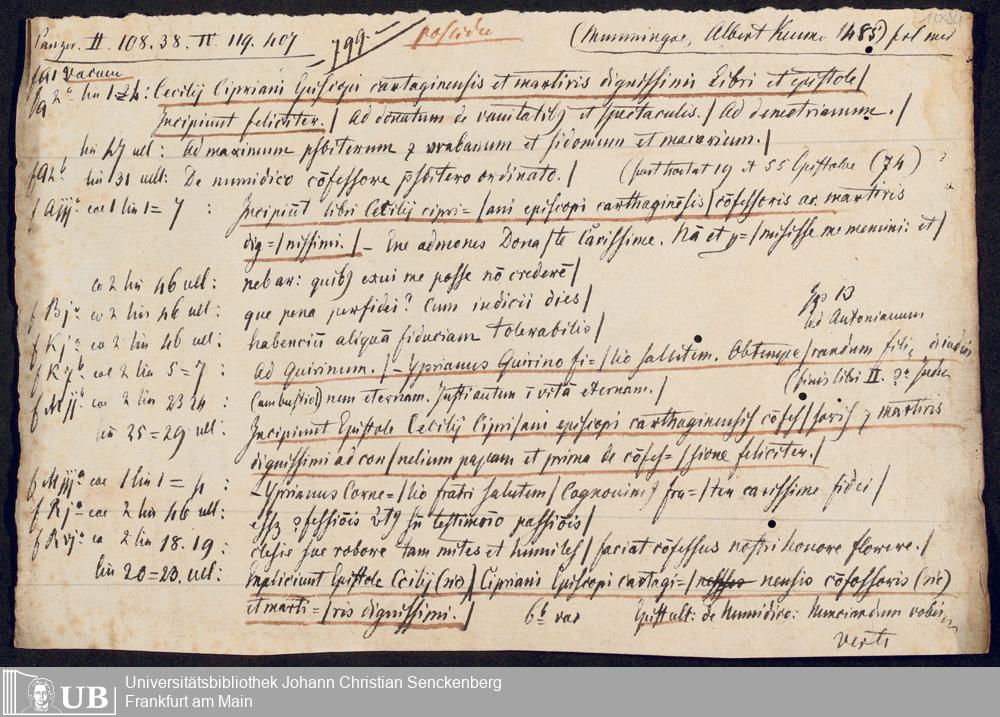 Panzer. II. 108. 38. IV. 119. 407 799. possidu (Memmingae, Albert Kunne 1485) fol med 1084
f a1 vacuum
f a 2 a lin 1-24: Cecilij Cipriani Episcopi cartaginensis et martiris dignissimi Libri et epistole/
Incipiunt feliciter./ Ad donatum de vanitatibꝫ et spectaculis./ Ad demetrianum./
lin 27 ult: Ad maximum psbiterum ⁊ vrabanum et sidonium et macarium./
f a 2 b lin 31 ult: De numidico cōfessore psbitero ordinato./ (sunt 19 et 55 Epistolae (74)
f Aiij a col 1 lin 1=7 : Incipiūt libri Cecilij cipri=/ani episcopi carthaginēsis/cōfessoris ac martiris
dig=/nissimi./ – Ene admones Dona/te Carissime. Nā et p=/misisse me memini: et/
co 2 lin 46 ult: nebar: quibꝫ exui me posse nō crederē/
f Bj a co 2 lin 46 ult: que pena perfidei? Cum iudicii dies/ Eps 13
f Kj a co 2 lin 46 ult: habenciū aliquā fiduciam tolerabilis/ ad Antonianum
f K 7 b col 2 lin 5=7 : Ad quirinum./– Yprianus Quirino fi=/lio salutem. Obtempe/randum fili,
f Mij a col 2 lin 23 24 : (ambustiōꝫ) nem eternam. Justi autem ī vitā eternam./ (finis libri II.
lin 25=29 ult: Incipiunt Epistole Cecilij Cipri/ani episcopi carthaginensis cōfes/soris ⁊ martiris
dignissimi ad cor/nelium papam et prima de cōfes=/sione feliciter./
f Miij a col 1 lin 1= : –Yprianus Corne=/lio fratri salutem/ Cognovimꝰ fra=/ter carissime fidei/
f Rj a col 2 lin 46 ult: testimōio passiōis/
f Rvj a co 2 lin 18.19: clesie sue robore tam mites et humiles/ faciat cōfessus nostri honore florere./
lin 20=23. ult: Expliciunt Epistole Ccilij (sic)/Cipriani Episcopi cartagi=/nensis cōfossoris (sic)
et marti=/ris dignissimi./ 6 b vac Epist ult: de Numidico: Nunciandum vobis
verte
UB Universitätsbibliothek Johann Christian Senckenberg
Frankfurt am Main